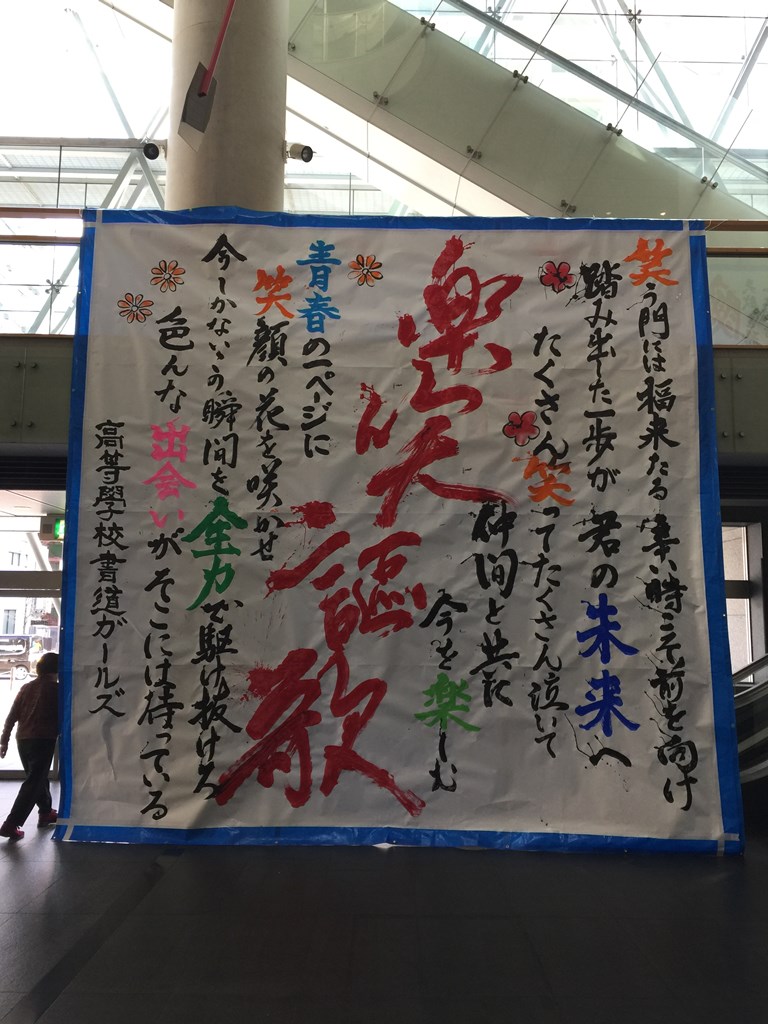 笑う門には福来たる 辛い時こそ前を向け
踏み出した一歩が 君の未来へ
たくさん笑ってたくさん泣いて
仲間と共に
今を楽しむ
楽笑謳歌
青春の一ページに
笑顔の花を咲かせ
今しかないこの瞬間を全力で駆け抜けろ
色んな出会いがそこには待っている
高等學校書道ガールズ